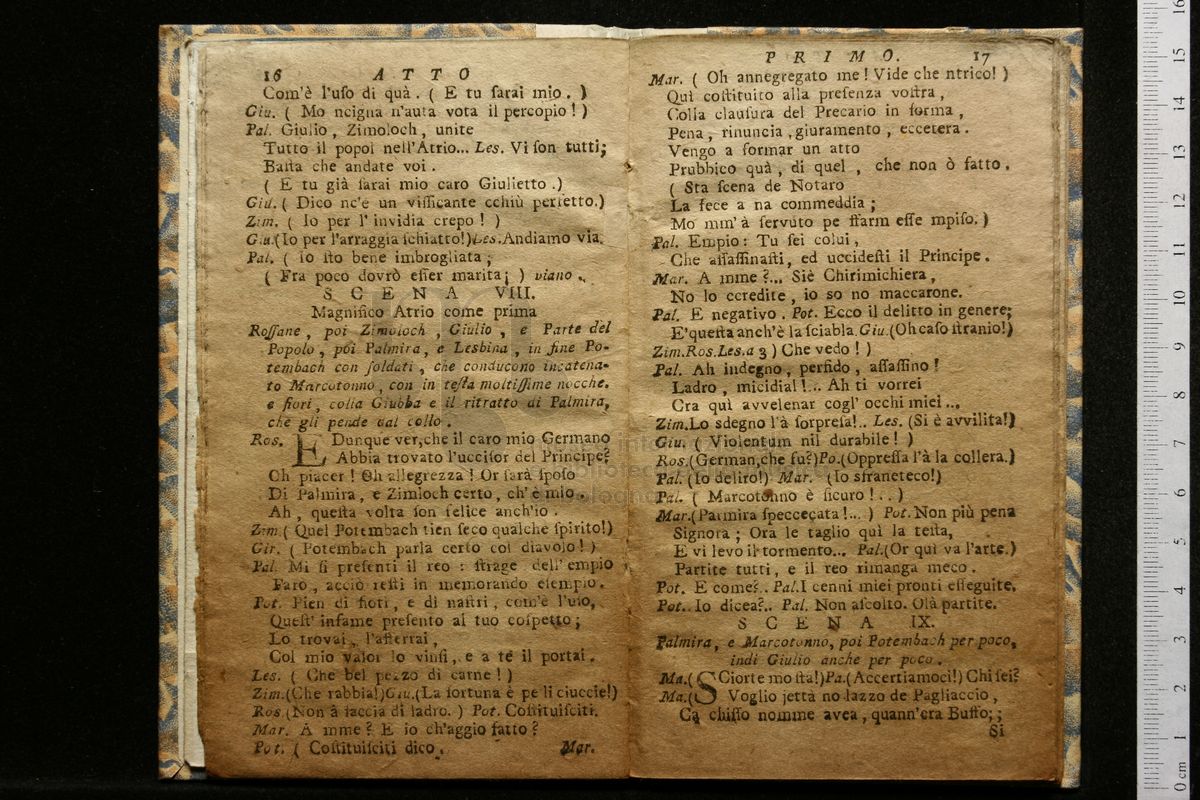 16 ATTO
Com'è l'uſo di quà. ( E tu ſarai mio. )
Giu. ( Mo ncigna n'auta vota il percopio! )
Pal. Giulio, Zimoloch, unite
Tutto il popol nell'Atrio... Les. Vi ſon tutti;
Baſta che andate voi.
( E tu già ſarai mio caro Giulietto.)
Giu. ( Dico nc'è un viſſicante cchiù perfetto.)
Zim. ( Io per l'invidia crepo! )
Giu.(Io per l'arraggia ſchiatto!)Les.Andiamo via.
Pal. ( Io ſto bene imbrogliata;
( Fra poco dovrò eſſer marita; ) viano.
SCENA VIII.
Magnifico Atrio come prima
Roſſane, poi Zimoloch, Giulio, e Parte del
Popolo, poi Palmira, e Lesbina, in fine Po-
tembach con ſoldati, che conducono incatena-
to Marcotonno, con in teſta moltiſſime nocche.
e fiori, colla Giubba e il ritratto di Palmira,
che gli pende dal collo.
Ros. E Dunque ver,che il caro mio Germano
Abbia trovato l'ucciſor del Principe?
Oh piacer! Oh allegrezza! Or ſarà ſpoſo
Di Palmira, e Zimloch certo, ch'è mio.
Ah, queſta volta ſon felice anch'io.
Zim ( Quel Potembach tien ſeco qualche ſpirito!)
Gir. ( Potembach parla certo col diavolo! )
Pal. Mi ſi preſenti il reo : ſtrage dell'empio
Farò, acciò reſti in memorando eſempio.
Pot. Pien di fiori, e di naſtri, com'è l'uſo,
Queſt' infame preſento al tuo coſpetto;
Lo trovai, l'afferrai,
Col mio valor lo vinſi, e a te il portai.
Les. ( Che bel pezzo di carne! )
Zim.(Che rabbia!)Giu.(La fortuna è pe li ciuccie!)
Ros.(Non à faccia di ladro. ) Pot. Coſtituiſciti.
Mar. A mme? E io ch'aggio fatto?
Pot. ( Coſtituiſciti dico. Mar.
PRIMO. 17
Mar. ( Oh annegregato me! Vide che ntrico! )
Quì coſtituito alla preſenza voſtra,
Colla clauſura del Precario in forma,
Pena, rinuncia, giuramento, eccetera.
Vengo a formar un atto
Prubbico quà, di quel, che non ò fatto.
( Sta ſcena de Notaro
La fece a na commeddia;
Mo mm'à ſervuto pe ſtarm eſſe mpiſo.)
Pal. Empio: Tu ſei colui,
Che aſſaſſinaſti, ed uccideſti il Principe.
Mar. A mme?... Siè Chirimichiera,
No lo ccredite, io ſo no maccarone.
Pal. E negativo. Pot. Ecco il delitto in genere;
E'queſta anch'è la ſciabla. Giu.(Oh caſo ſtranio!)
Zim.Ros.Les.a 3 ) Che vedo! )
Pal. Ah indegno, perfido, aſſaſſino!
Ladro, micidial!... Ah ti vorrei
Cra quì avvelenar cogl' occhi miei...
Zim.Lo sdegno l'à ſorpreſa!.. Les. (Si è avvilita!)
Giu. ( Violentum nil durabile! )
Ros.(German,che fu?)Po.(Oppreſſa l'à la collera.)
Pal. (Io deliro!) Mar. (Io sfraneteco!)
Pal. ( Marcotonno è ſicuro!..)
Mar.(Palmira ſpeccecata!... ) Pot. Non più pena
Signora; Ora le taglio quì la teſta,
E vi levo il tormento... Pal.(Or quì va l'arte.)
Partite tutti, e il reo rimanga meco.
Pot. E come?.. Pal.I cenni miei pronti eſſeguite.
Pot. Io dicea?.. Pal. Non aſcolto. Olà partite.
SCENA IX.
Palmira, e Marcotonno, poi Potembach per poco,
indi Giulio anche per poco.
Ma.( SCiorte mo ſta!)Pa.(Accertiamoci!) Chi ſei?
Ma.( Voglio jettà no lazzo de Pagliaccio,
Ca chiſſo nomme avea, quann'era Buffo;;
Si